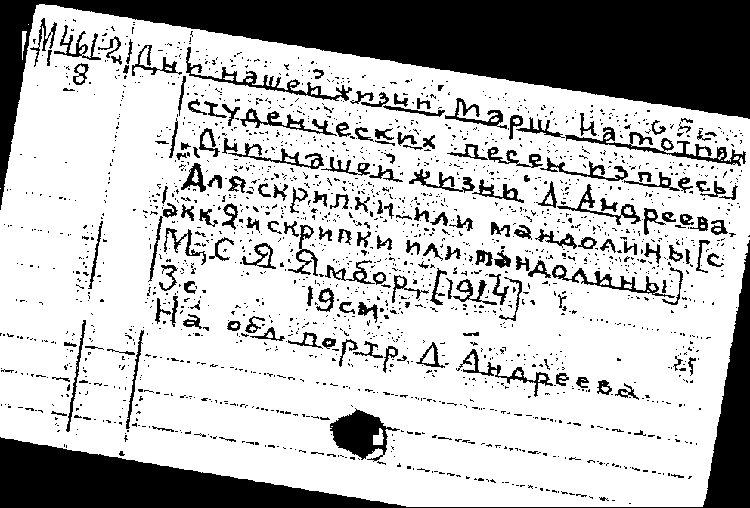 М 461-2
8
Дни нашей жизни. Марш. На мотивы
студенческих песен из пьесы
"Дни нашей жизни" Л. Андреева.
Для скрипки или мандолины [с
акк. 2-й скрипки или мандолины].
М., С. Я. Ямбор, [1914].
3 с. 19 см.
На обл. портр. Л. Андреева.